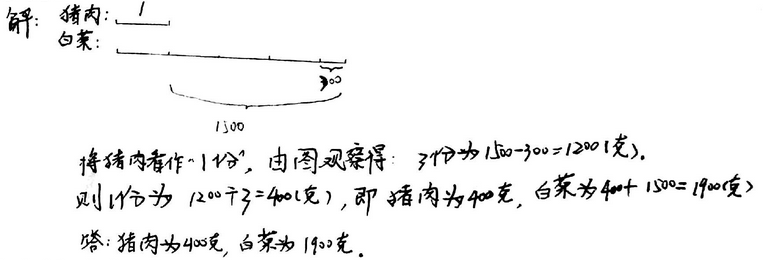 解: 猪肉: 1
白菜:
300
1500
将猪肉看作"1份", 由图观察得: 3份为1500-300=1200(克).
则1份为 1200÷3=400(克), 即 猪肉为400克, 白菜为400+1500=1900(克)
答: 猪肉为400克, 白菜为1900克.